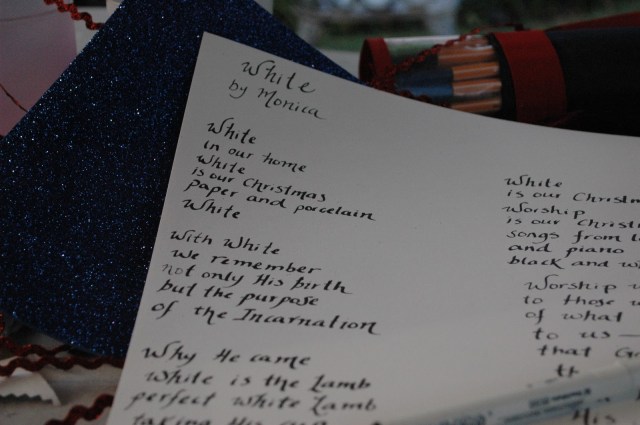 White
by Monica
White
in our home
White
is our Christmas
paper and porcelain
White
With White
we remember
not only His birth
but the purpose
of the Incarnation
Why He came
White is the Lamb
perfect White Lamb
taking His
White
is our
Worship
is our
songs from
and piano
black and
Worship
to those
of what
to us —
that
His